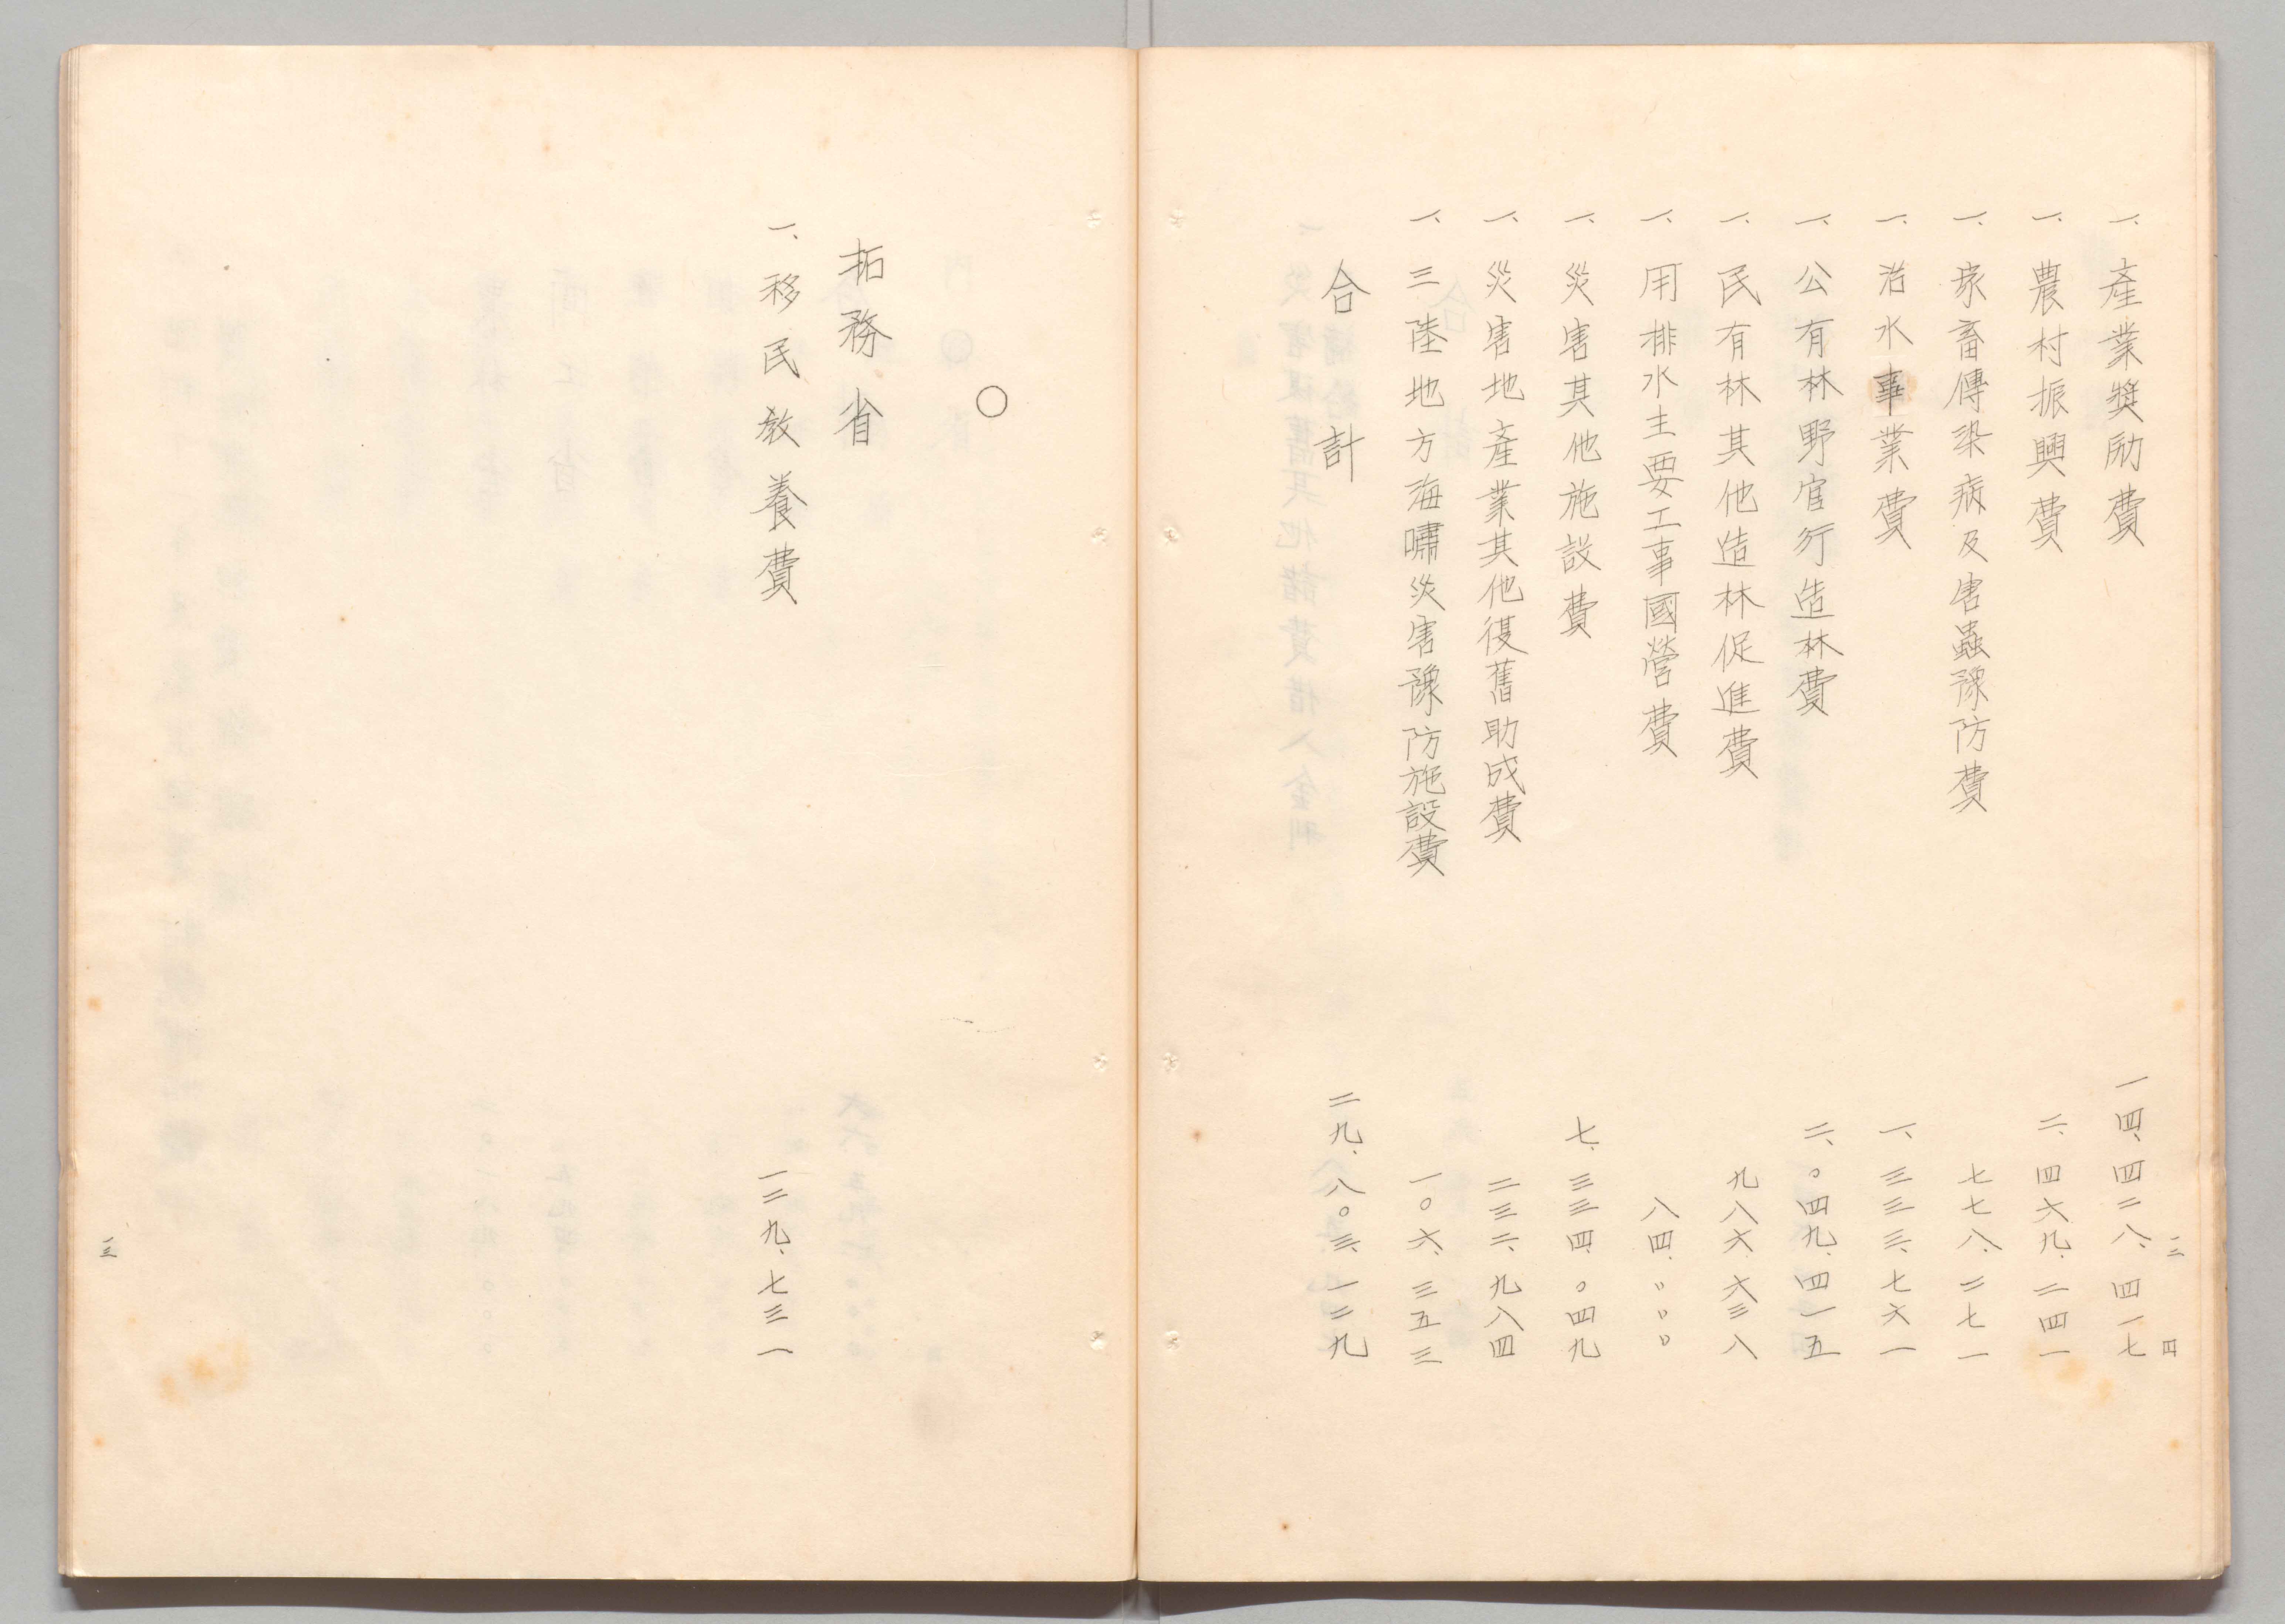 一二
四
一、産業奬励費 一四、四二八、四一七
一、農村振興費 二、四六九、二四一
一、家畜傳染病及害蟲豫防費 七七八、二七一
一、治水事業費 一、三三三、七六一
一、公有林野官行造林費 二、〇四九、四一五
一、民有林其他造林促進費 九八六、六三八
一、用排水主要工事國營費 八四、〇〇〇
一、災害其他施設費 七、三三四、〇四九
一、災害地産業其他復舊助成費 二三二、九八四
一、三陸地方海嘯災害豫防施設費 一〇六、三五三
合計 二九、八〇三、一二九
〇
拓務省
一、移民教養費 一二九、七三一
一三